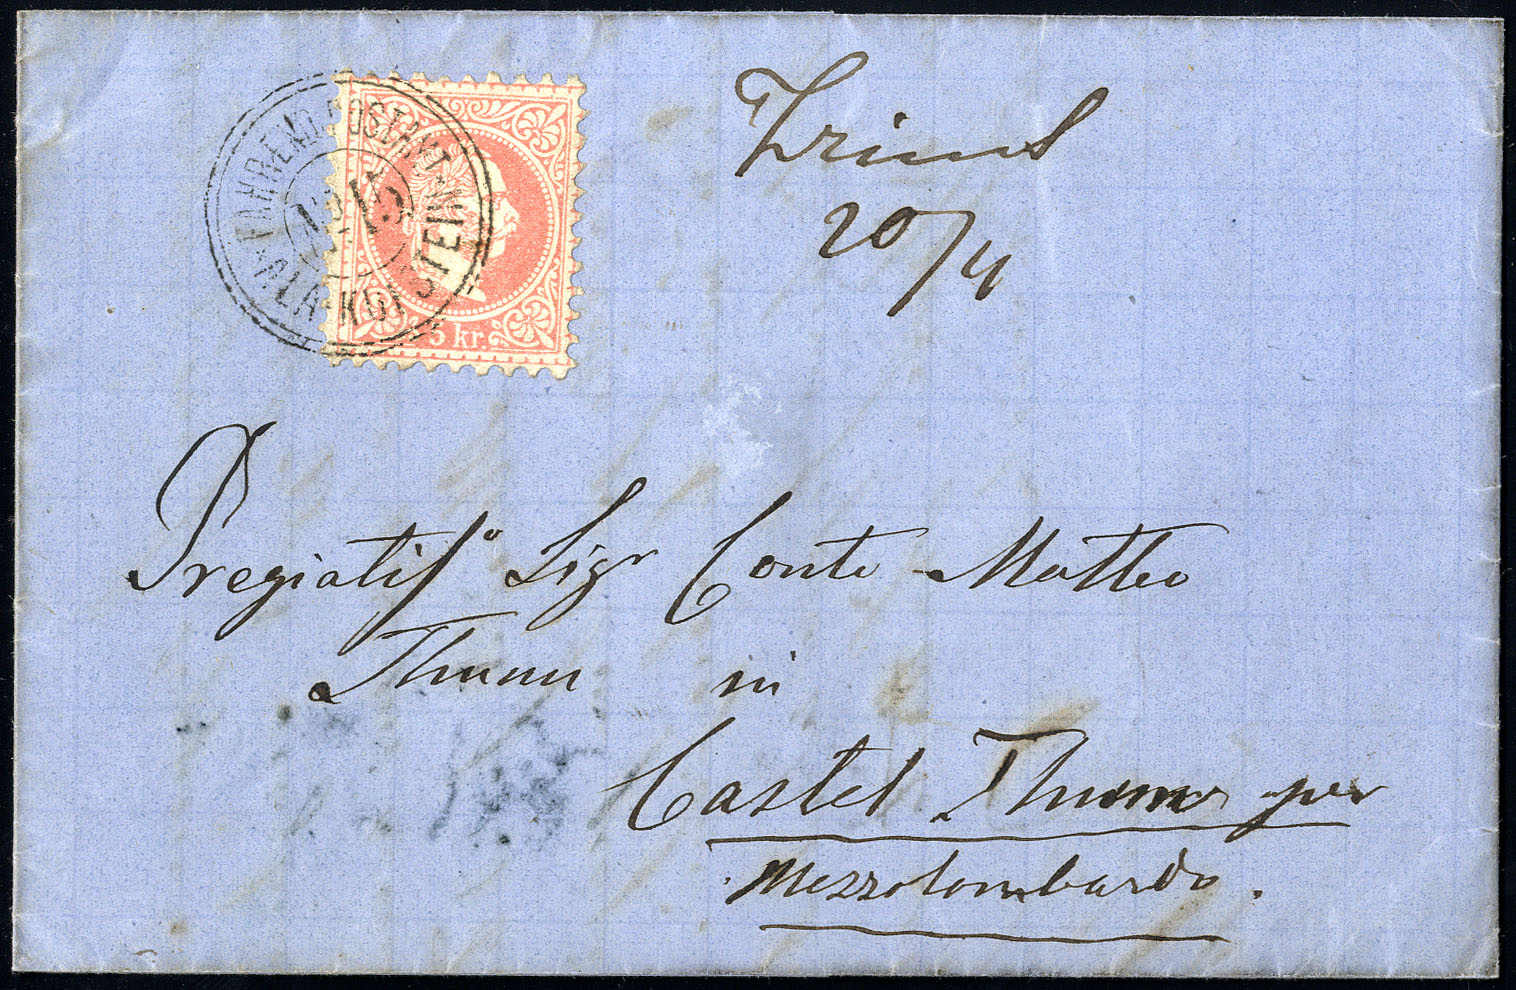 FAHREND. POSTAMT
ALA KUFSTEIN
5 kr.
20/4
Pregiatiss° Sigr Conte Matteo
Thunn in
Castel Thunn per
Mezzolombardo.